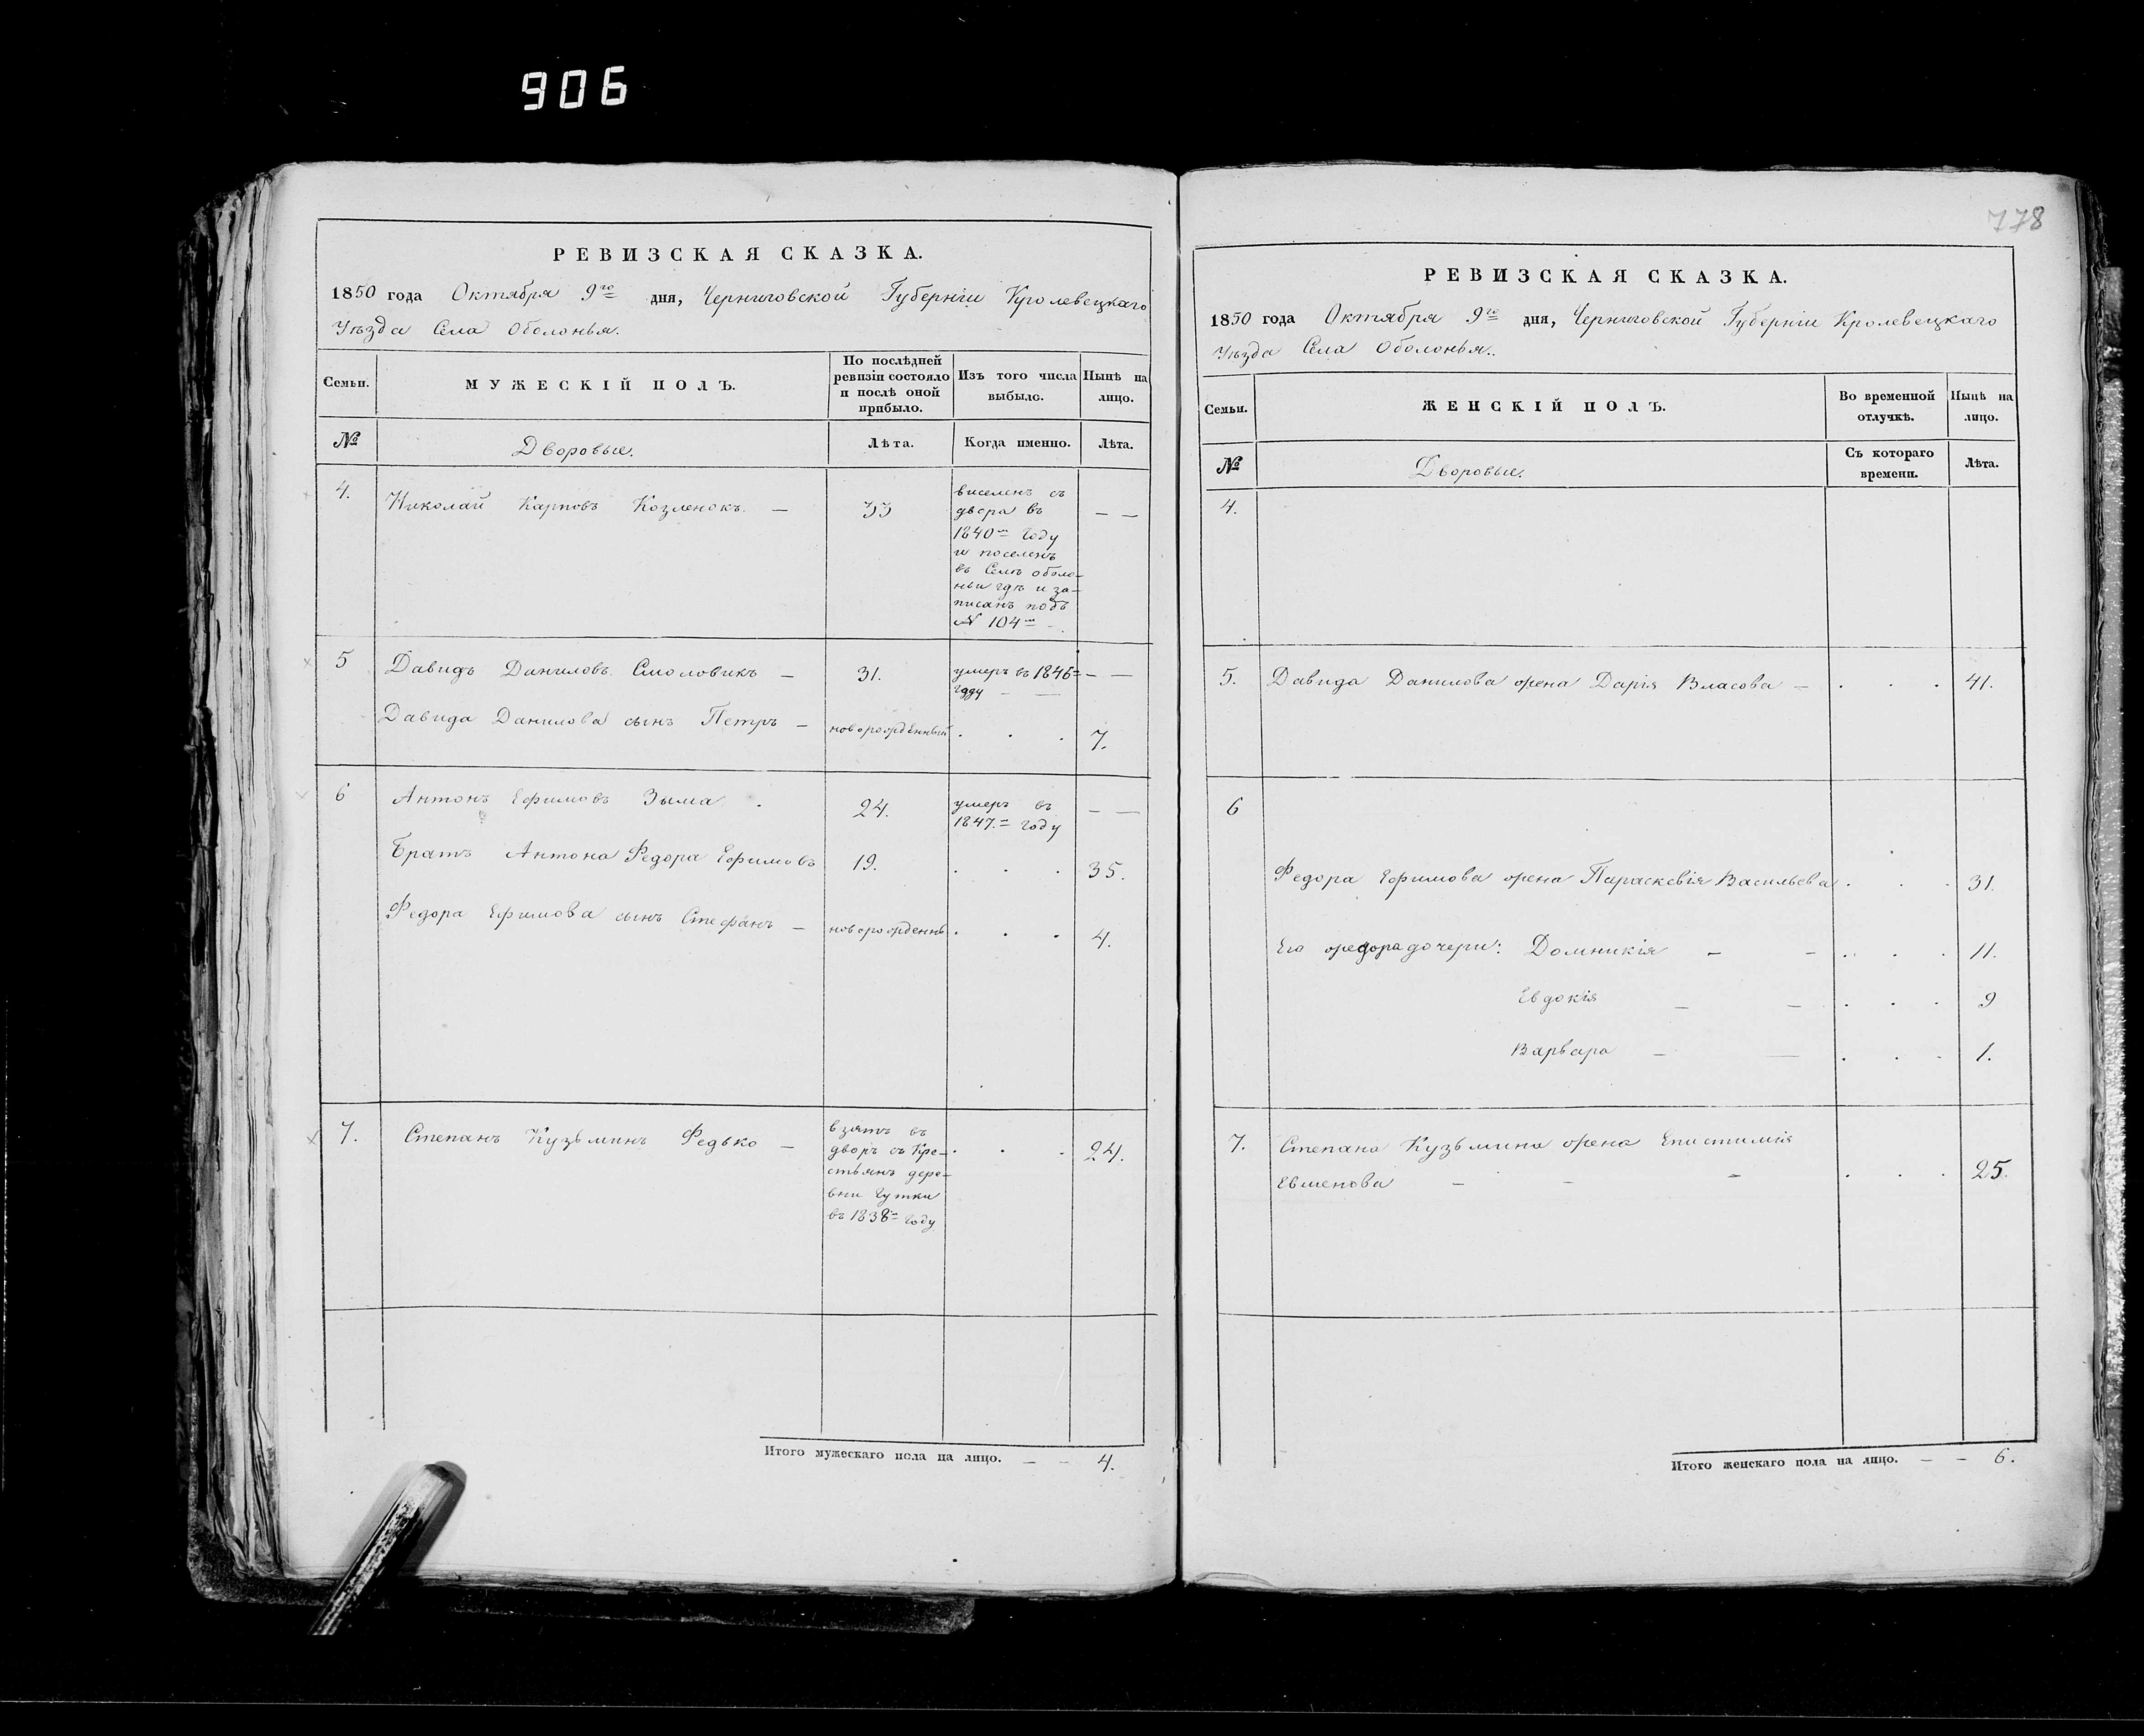 906
РЕВИЗСКАЯ СКАЗКА.
1850 года Октября 9го дня, Черниговской Губерніи Кролевецкаго
Уѣзда Села Оболонья.
Семьи.
МУЖЕСКІЙ ПОЛЪ.
По послѣдней
ревизіи состояло
и послѣ оной
прибыло.
Изъ того числа
выбыло.
Нынѣ на
лицо.
№
Дворовые.
Лѣта.
Когда именно.
Лѣта.
4.
Николай Карповъ Козленокъ. —
33
виселенъ съ
двора въ
1840м Году
и поселенъ
въ Селѣ оболо-
ньи гдѣ и за-
писанъ подъ
№ 104м -
— —
5
Давидъ Даниловъ Смоловикъ —
31.
умеръ въ 1846=
году — —
— —
Давида Данилова сынъ Петръ —
новорожденный
. . .
7.
6
Антонъ Ефимовъ Зыма .
24.
умеръ въ
1847.= году
— —
Братъ Антона Федора Ефимовъ
19.
. . .
35.
Федора Ефимова сынъ Стефанъ —
новорожденнъ
. . .
4.
7.
Степанъ Кузьминъ Федько —
взятъ въ
дворъ съ Кре-
стьянъ дере-
вни Гутки
въ 1838м году
. . .
24.
Итого мужескаго пола на лицо. — — 4.
778
РЕВИЗСКАЯ СКАЗКА.
1850 года Октября 9го дня, Черниговской Губерніи Кролевецкаго
Уѣзда Села Оболонья.
Семьи.
ЖЕНСКІЙ ПОЛЪ.
Во временной
отлучкѣ.
Нынѣ на
лицо.
№
Дворовые.
Съ котораго
времени.
Лѣта.
4.
5.
Давида Данилова жена Дарія Власова —
. . .
41.
6
Федора Ефимова жена Параскевія Васильева
. . .
31.
Его федора дочери: Домникія — —
. . .
11.
Евдокія — —
. . .
9
Варвара — —
. . .
1.
7.
Степана Кузьмина жена Епистимія
Евменова — — —
. . .
25.
Итого женскаго пола на лицо. — — 6.